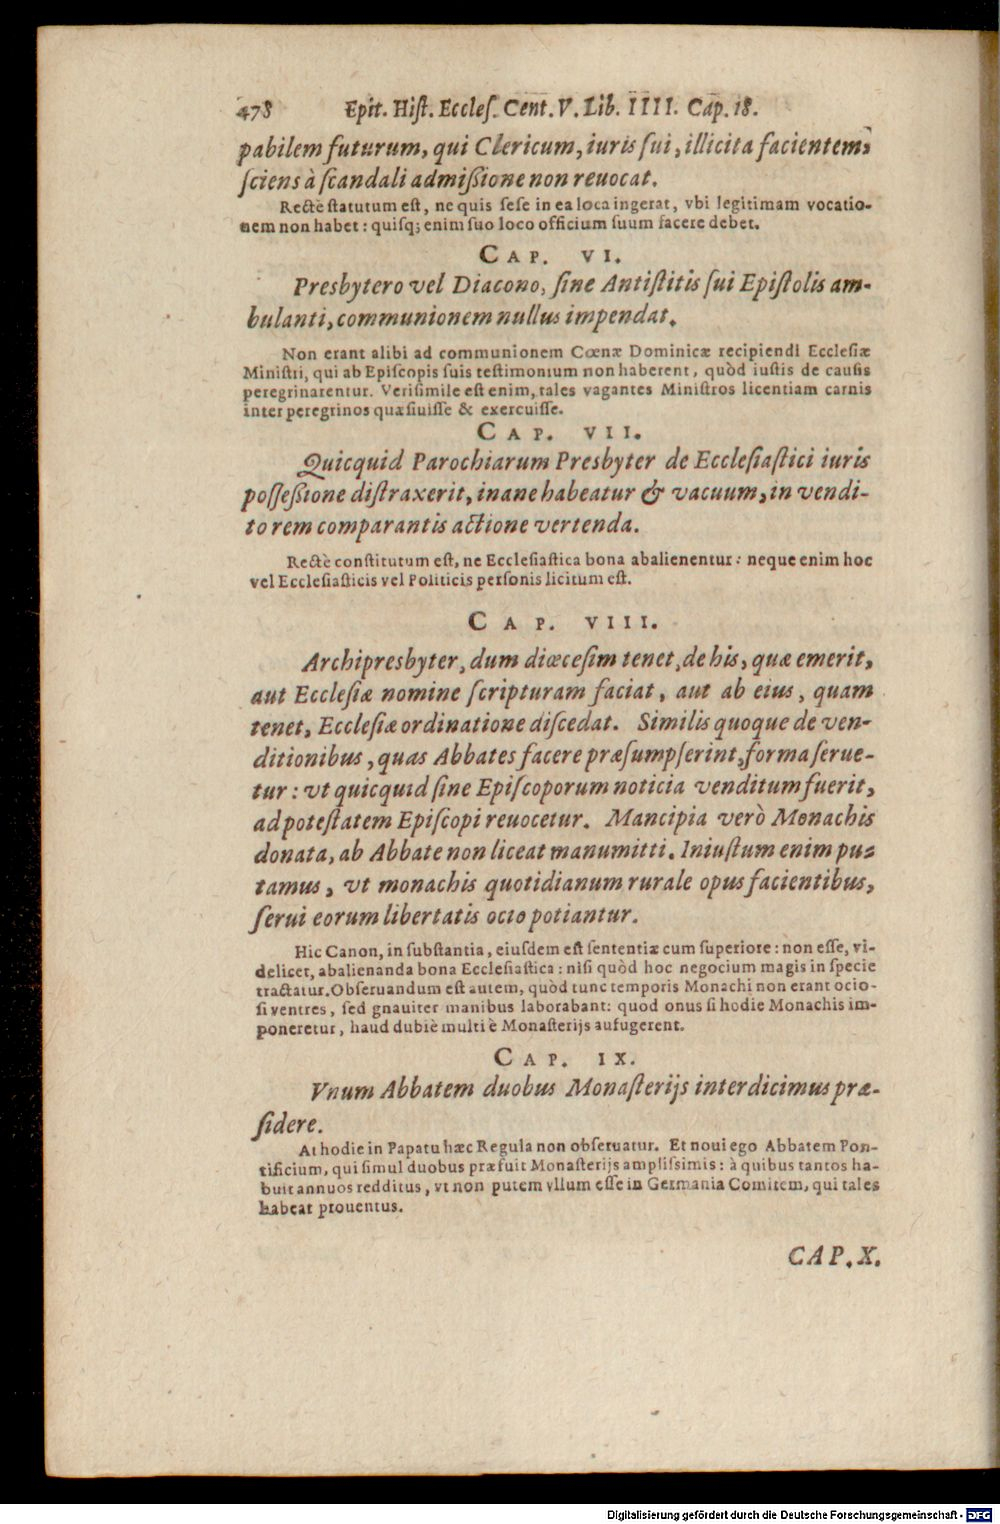 478 Epit. Hiſt. Eccleſ. Cent. V. Lib. IIII. Cap. 18.
pabilem futurum, qui Clericum, iuris ſui, illicita facientem,
ſciens à ſcandali admiſſione non reuocat.
Rectè ſtatutum eſt, ne quis ſeſe in ea loca ingerat, vbi legitimam vocatio-
nem non habet: quiſq; enim ſuo loco officium ſuum facere debet.
CAP. VI.
Presbytero vel Diacono, ſine Antiſtitis ſui Epiſtolis am-
bulanti, communionem nullus impendat.
Non erant alibi ad communionem Cœnæ Dominicæ recipiendi Eccleſiæ
Miniſtri, qui ab Epiſcopis ſuis teſtimonium non haberent, quòd iuſtis de cauſis
peregrinarentur. Veriſimile eſt enim, tales vagantes Miniſtros licentiam carnis
inter peregrinos quæſiuiſſe & exercuiſſe.
CAP. VII.
Quicquid Parochiarum Presbyter de Eccleſiaſtici iuris
poſſeſſione diſtraxerit, inane habeatur & vacuum, in vendi-
torem comparantis actione vertenda.
Rectè conſtitutum eſt, ne Eccleſiaſtica bona abalienentur: neque enim hoc
vel Eccleſiaſticis vel Politicis perſonis licitum eſt.
CAP. VIII.
Archipresbyter, dum diœceſim tenet, de his, quæ emerit,
aut Eccleſiæ nomine ſcripturam faciat, aut ab eius, quam
tenet, Eccleſiæ ordinatione diſcedat. Similis quoque de ven-
ditionibus, quas Abbates facere præſumpſerint, forma ſerue-
tur: vt quicquid ſine Epiſcoporum noticia venditum fuerit,
ad poteſtatem Epiſcopi reuocetur. Mancipia verò Monachis
donata, ab Abbate non liceat manumitti. Iniuſtum enim pu-
tamus, vt monachis quotidianum rurale opus facientibus,
ſerui eorum libertatis ocio potiantur.
Hic Canon, in ſubſtantia, eiuſdem eſt ſententiæ cum ſuperiore: non eſſe, vi-
delicet, abalienanda bona Eccleſiaſtica: niſi quòd hoc negocium magis in ſpecie
tractatur. Obſeruandum eſt autem, quòd tunc temporis Monachi non erant ocio-
ſi ventres, ſed gnauiter manibus laborabant: quod onus ſi hodie Monachis im-
poneretur, haud dubiè multi è Monaſterijs aufugerent.
CAP. IX.
Vnum Abbatem duobus Monaſterijs interdicimus præ-
ſidere.
At hodie in Papatu hæc Regula non obſeruatur. Et noui ego Abbatem Pon-
tificium, qui ſimul duobus præfuit Monaſterijs ampliſsimis: à quibus tantos ha-
buit annuos redditus, vt non putem vllum eſſe in Germania Comitem, qui tales
habeat prouentus.
CAP. X.
Digitalisierung gefördert durch die Deutsche Forschungsgemeinschaft - DFG